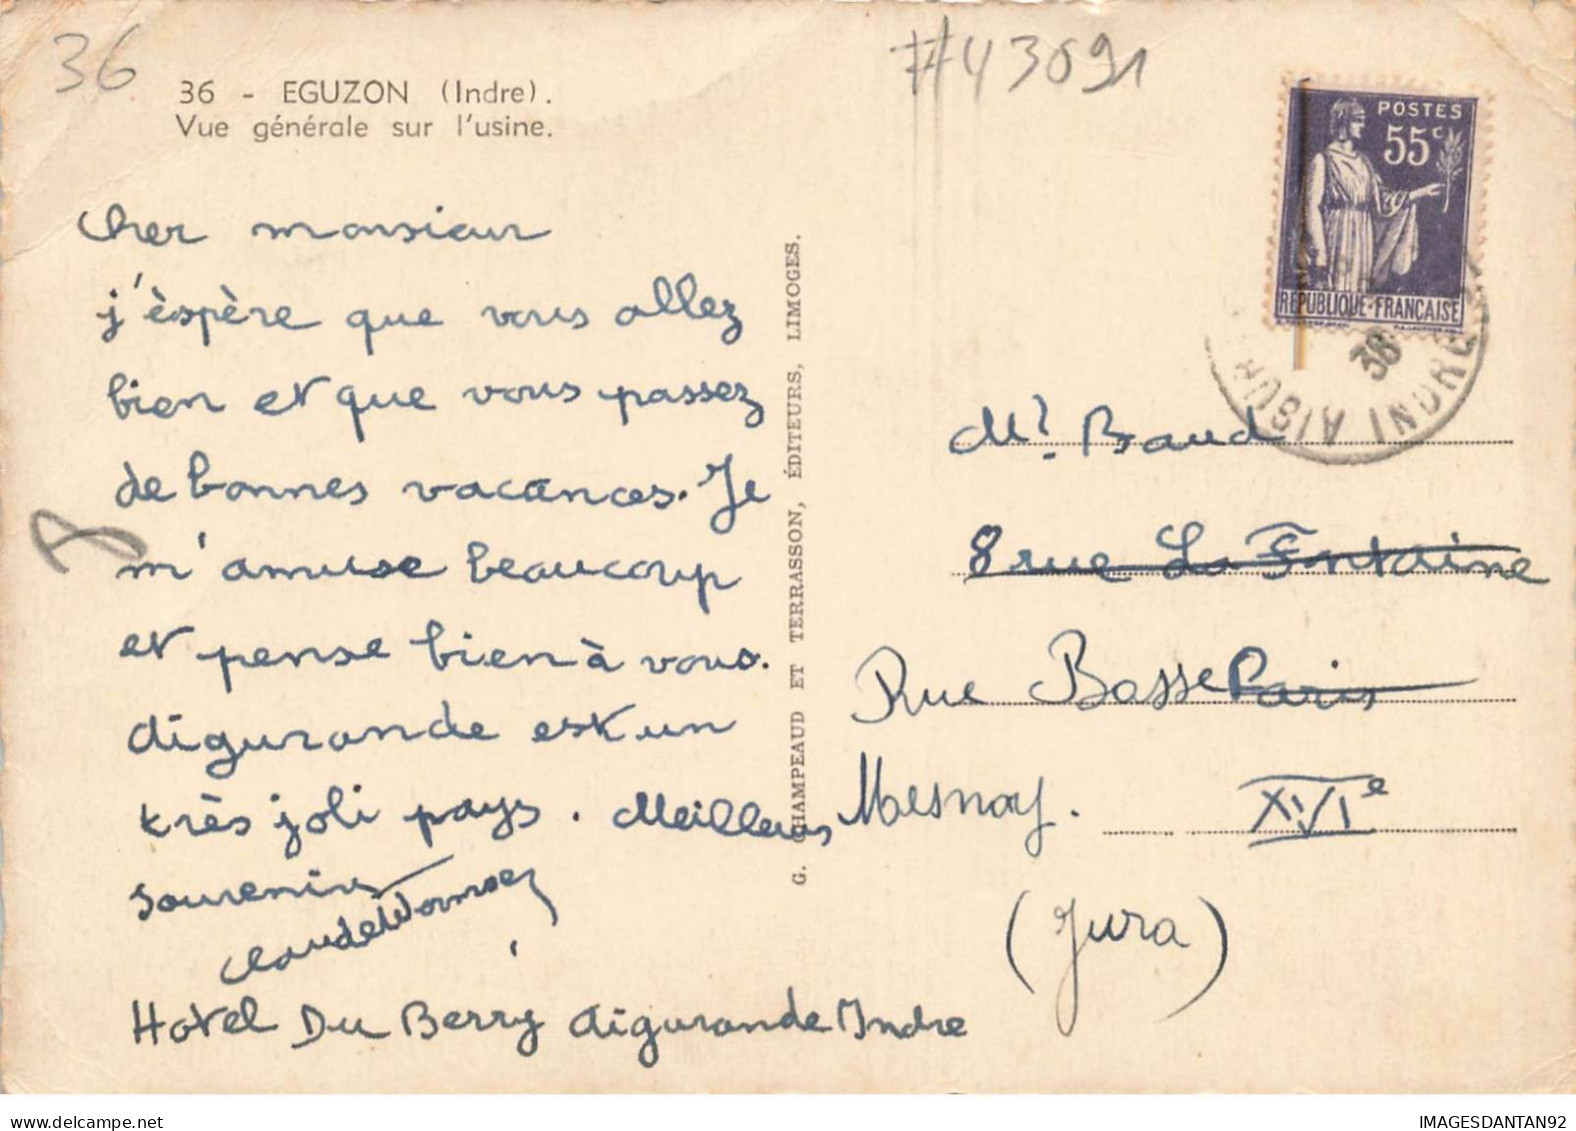 36
#43091
36 - EGUZON (Indre).
Vue générale sur l'usine.
POSTES
55c
REPUBLIQUE-FRANÇAISE
38
AIGUR INDRE
cher monsieur
j'èspère que vous allez
bien et que vous passez
de bonnes vacances. Je
m'amuse beaucoup
et pense bien à vous.
aigurande est un
très joli pays. Meilleurs
souvenirs
Claude Wormser
Hotel Du Berry aigurande Indre
G. CHAMPEAUD ET TERRASSON, ÉDITEURS, LIMOGES.
Mr. Baud
8 rue La Fontaine
Rue Basse Paris
Mesnay. XVIe
(Jura)
www.delcampe.net
IMAGESDANTAN92